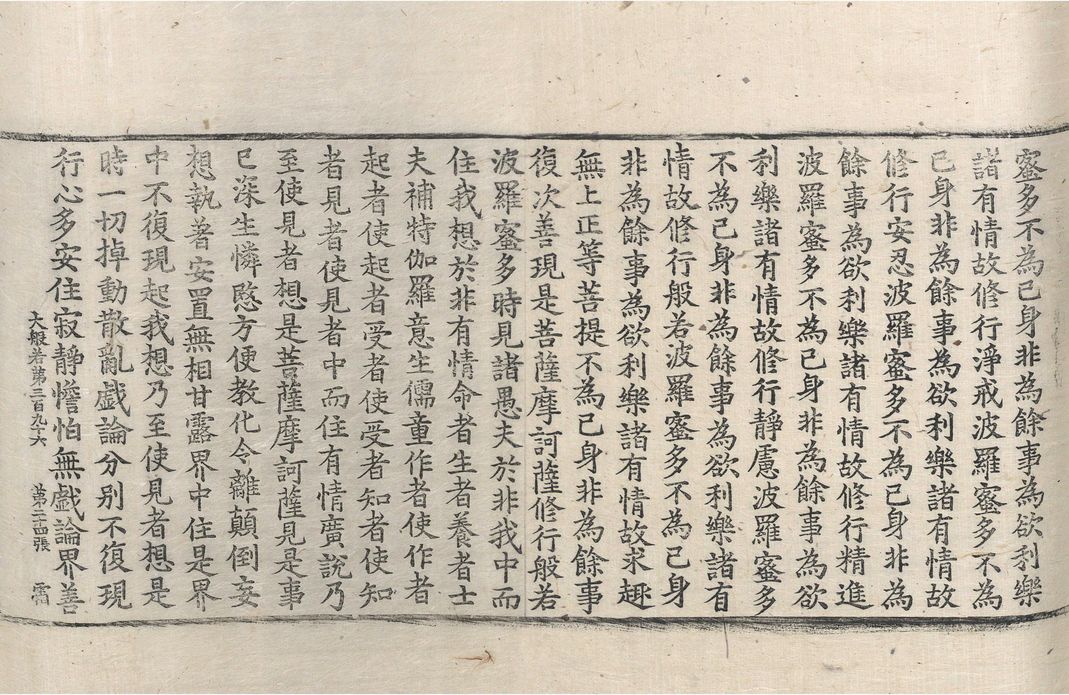 蜜多不為己身非為餘事為欲利樂
諸有情故修行淨戒波羅蜜多不為
己身非為餘事為欲利樂諸有情故
修行安忍波羅蜜多不為己身非為
餘事為欲利樂諸有情故修行精進
波羅蜜多不為己身非為餘事為欲
利樂諸有情故修行靜慮波羅蜜多
不為己身非為餘事為欲利樂諸有
情故修行般若波羅蜜多不為己身
非為餘事為欲利樂諸有情故求趣
無上正等菩提不為己身非為餘事
復次善現是菩薩摩訶薩修行般若
波羅蜜多時見諸愚夫於非我中而
住我想於非有情命者生者養者士
夫補特伽羅意生儒童作者使作者
起者使起者受者使受者知者使知
者見者使見者中而住有情廣說乃
至使見者想是菩薩摩訶薩見是事
已深生憐愍方便教化令離顛倒妄
想執著安置無相甘露界中住是界
中不復現起我想乃至使見者想是
時一切掉動散亂戱論分別不復現
行心多安住寂靜憺怕無戱論界善
大般若第三百九十六 第 四張 霜